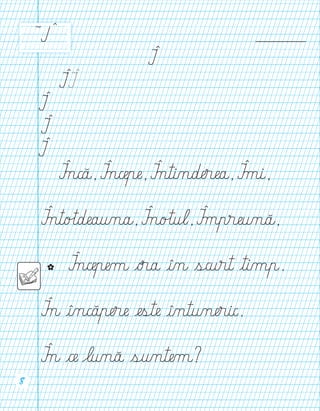 Î
Î
Î Î
Î
Î
Î
Încă, Începe, Întinderea, Îmi,
Întotdeauna, Înotul, Împreună,
Începem ora în scurt timp.
În încăpere este întuneric.
În ce lună suntem?
8